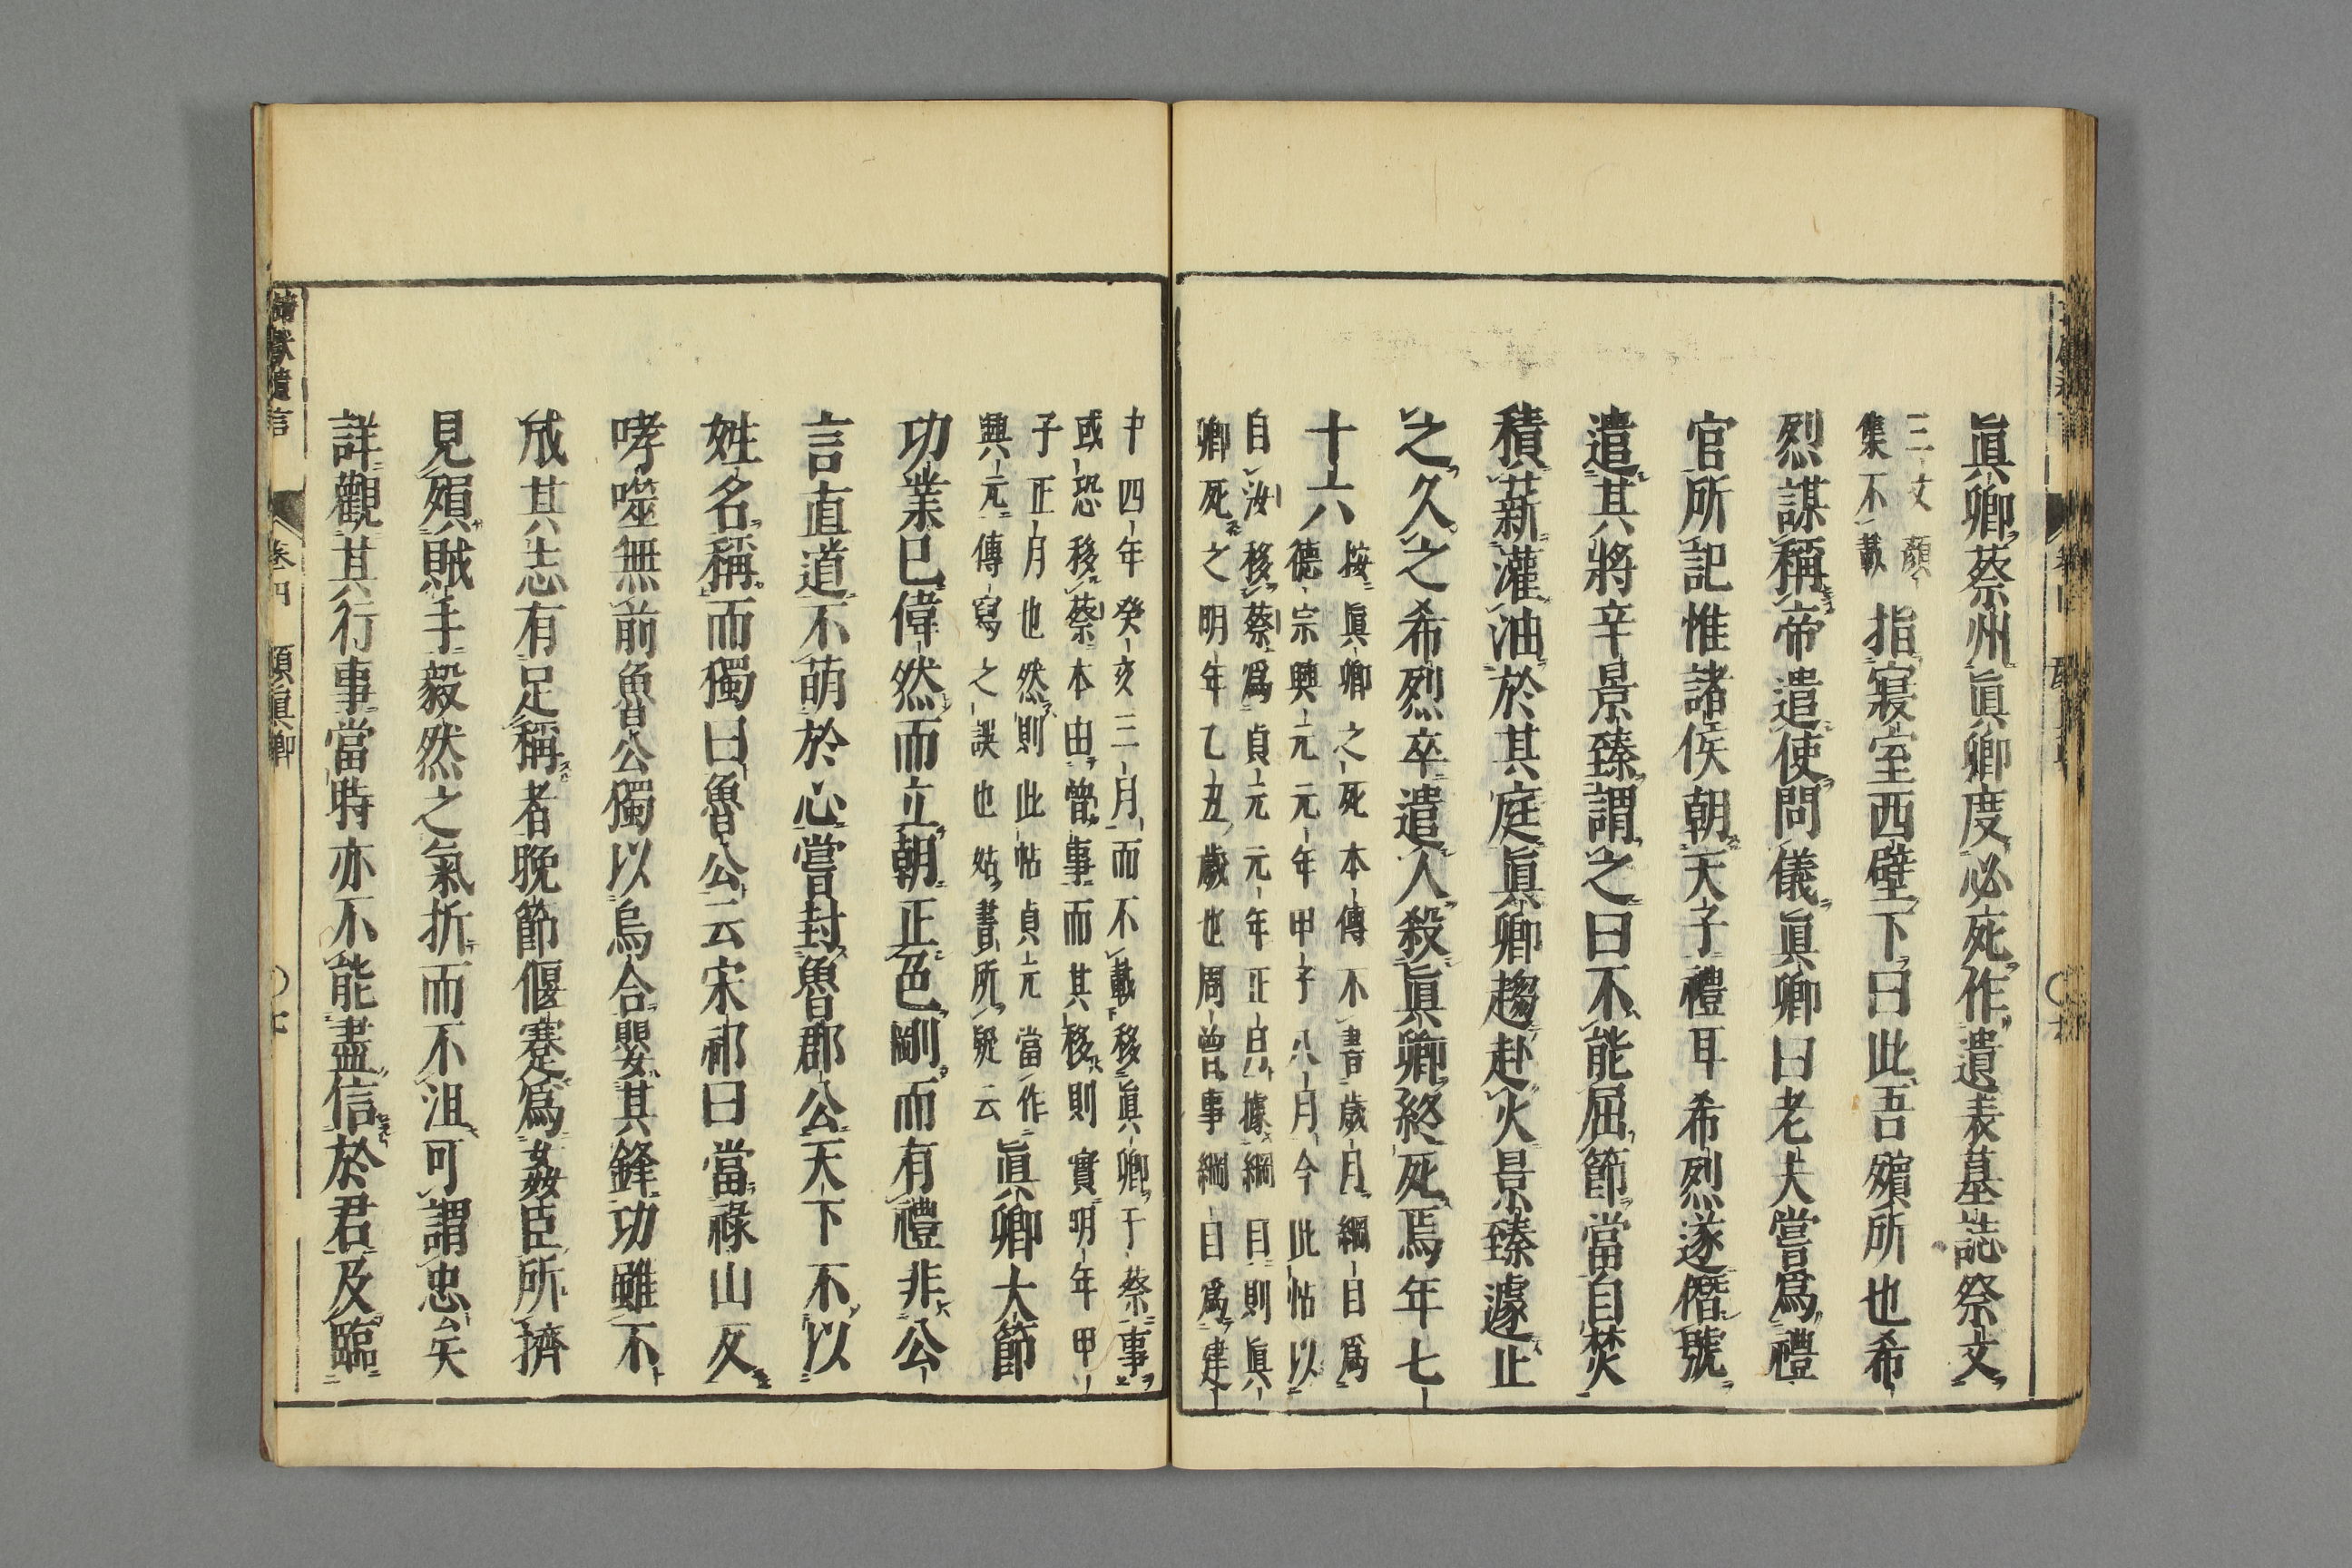 眞卿蔡州眞卿度必死作遺表墓誌祭文
三文顏
集不載
指寢室西壁下曰此吾殯所也希
烈謀稱帝遣使問儀眞卿曰老夫嘗爲禮
官所記惟諸侯朝天子禮耳希烈遂僭號
遣其將辛景臻謂之曰不能屈節當自焚
積薪灌油於其庭眞卿趨赴火景臻遽止
之久之希烈卒遣人殺眞卿終死焉年七
十六
按眞卿之死本傳不書歲月綱目爲
德宗興元元年甲子八月今此帖以
自汝移蔡爲貞元元年正月據綱目則眞
卿死之明年乙丑歲也周曾事綱目爲建
中四年癸亥三月而不載移眞卿于蔡事
或恐移蔡本由曾事而其移則實明年甲
子正月也然則此帖貞元當作
興元傳寫之誤也姑書所疑云
眞卿大節
功業已偉然而立朝正色剛而有禮非公
言直道不萌於心嘗封魯郡公天下不以
姓名稱而獨曰魯公云宋祁曰當祿山反
哮噬無前魯公獨以烏合嬰其鋒功雖不
成其志有足稱者晚節偃蹇爲姦臣所擠
見殞賊手毅然之氣折而不沮可謂忠矣
詳觀其行事當時亦不能盡信於君及臨
靖獻遺言
卷四
顏眞卿